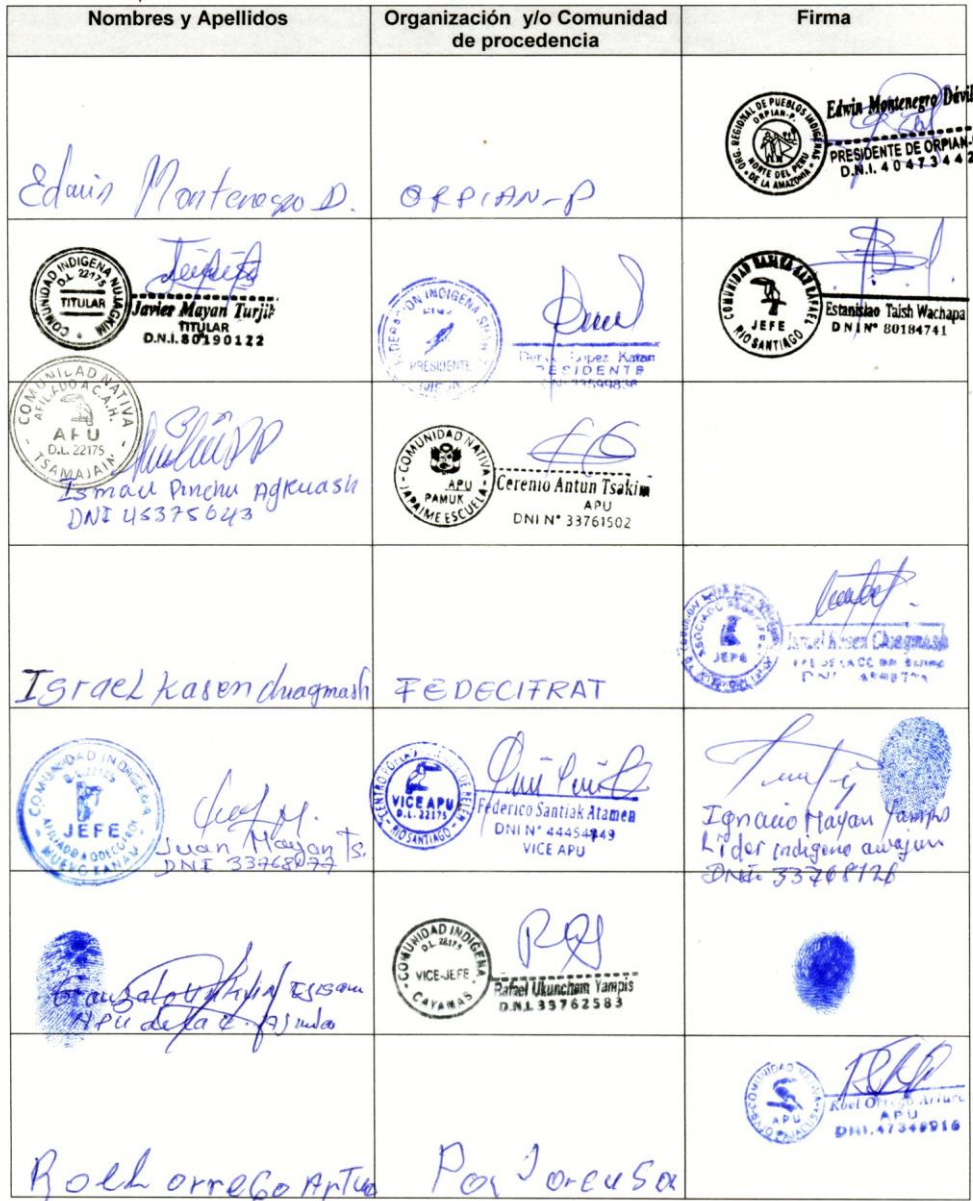 Nombres y Apellidos
Organización y/o Comunidad
de procedencia
Firma
Edwin Montenegro D.
ORPIAN-P
ORG. REGIONAL DE PUEBLOS INDIGENAS
ORPIAN-P.
NORTE DEL PERU
DE LA AMAZONIA
Edwin Montenegro Dávil
PRESIDENTE DE ORPIAN-
D.N.I. 40473442
COMUNIDAD INDIGENA NUJAGKIM
D.L. 22175
TITULAR
Javier Mayan Turjik
TITULAR
D.N.I. 80190122
INDIGENA
PRESIDENTE
Lopez Katan
PRESIDENTE
COMUNIDAD NATIVA SAN RAFAEL
JEFE
RIO SANTIAGO
Estanislao Taish Wachapa
DNI Nº 80184741
COMUNIDAD NATIVA
AFILADO A C.A.H.
APU
D.L. 22175
TSAMAJAIN
Ismael Pinchu Agkuash
DNI 45375643
COMUNIDAD NATIVA
APU
PAMUK
JAPAIME ESCUELA
Cerenio Antun Tsakim
APU
DNI Nº 33761502
Israel Kasen chuagmash
FEDECIFRAT
JEFE
Israel Kasen Chuagmash
COMUNIDAD INDIGENA
D.L. 22175
JEFE
NUEVO KANAM
Juan Mayan Ts.
DNI 33768077
DE BELEN
VICE APU
D.L. 22175
RIO SANTIAGO
Federico Santiak Atamen
DNI Nº 44454949
VICE APU
Ignacio Mayan Yampis
Lider indigena awajun
DNI 33768126
Gonzalo
APU de la C.
COMUNIDAD INDIGENA
D.L. 22175
VICE-JEFE
CAYAMAS
Rafael Ukuncham Yampis
D.N.I. 33762583
Roel orrego Arturo
COMUNIDAD NATIVA
APU
Roel Orrego Arturo
APU
DNI. 47348916